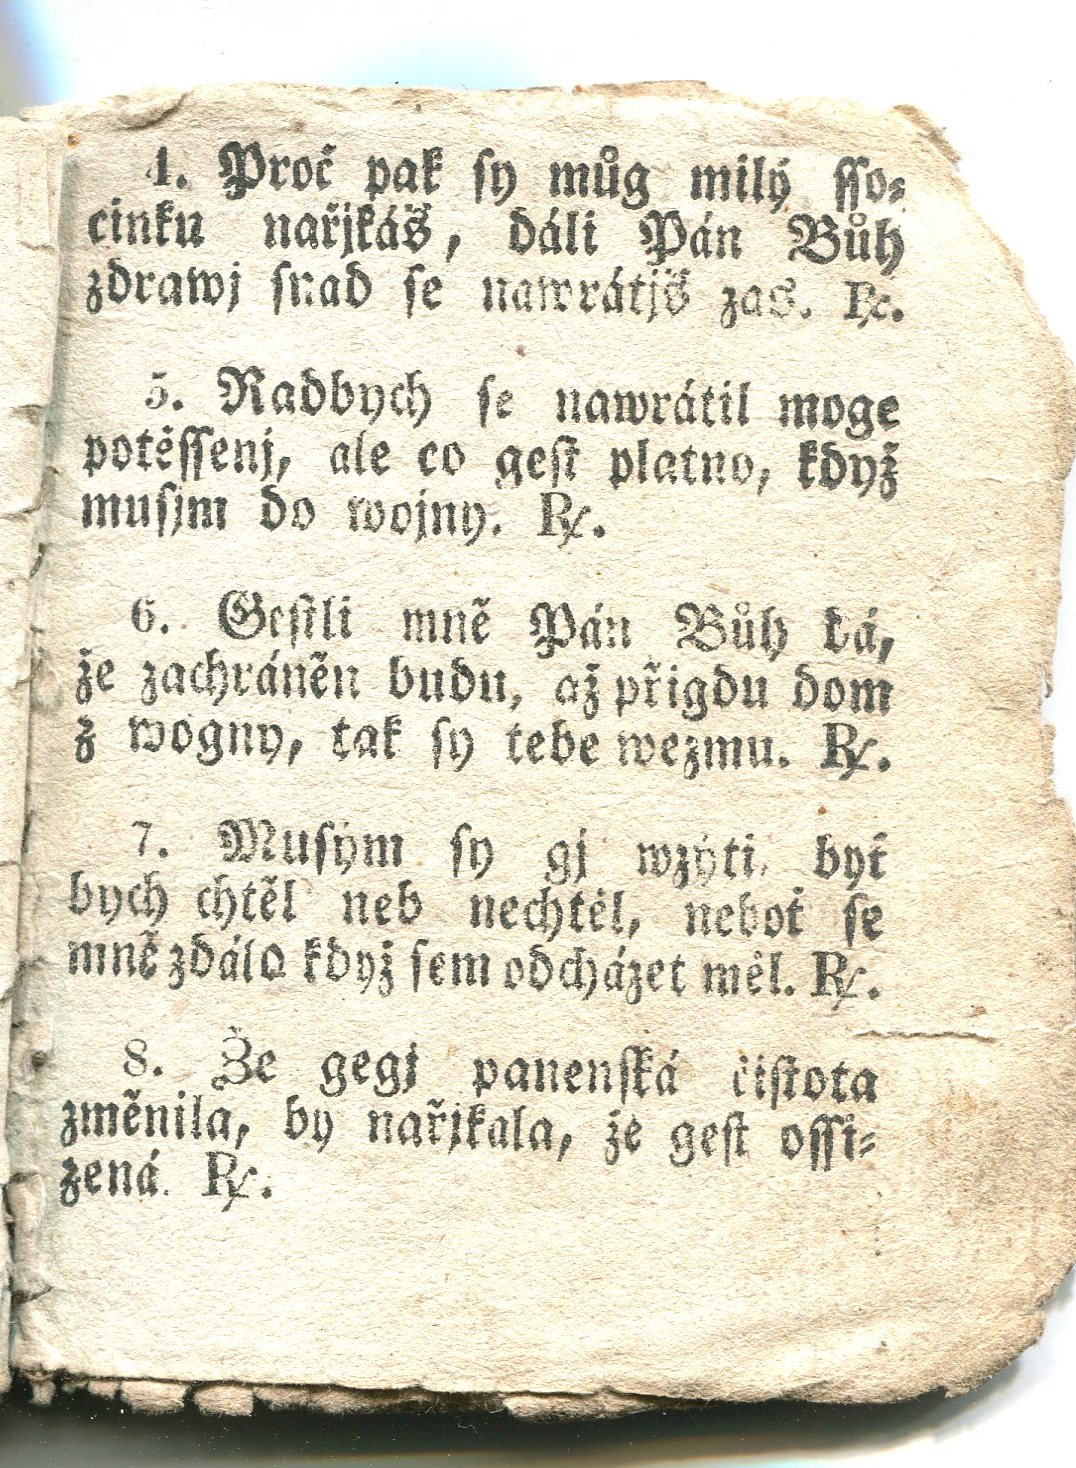 4. Proč pak sy můg milý sso⸗
cinku nařjkáš, dáli Pán Bůh
zdrawj snad se nawrátjš zas. ℞.
5. Radbych se nawrátil moge
potěssenj, ale co gest platno, když
musjm do wojny. ℞.
6. Gestli mně Pán Bůh dá,
že zachráněn budu, až přigdu dom
z wogny, tak sy tebe wezmu. ℞.
7. Musým sy gj wzýti, byť
bych chtěl neb nechtěl, neboť se
mně zdálo když sem odcházet měl. ℞.
8. Že gegj panenská čistota
změnila, by nařjkala, že gest ossi⸗
zená. ℞.